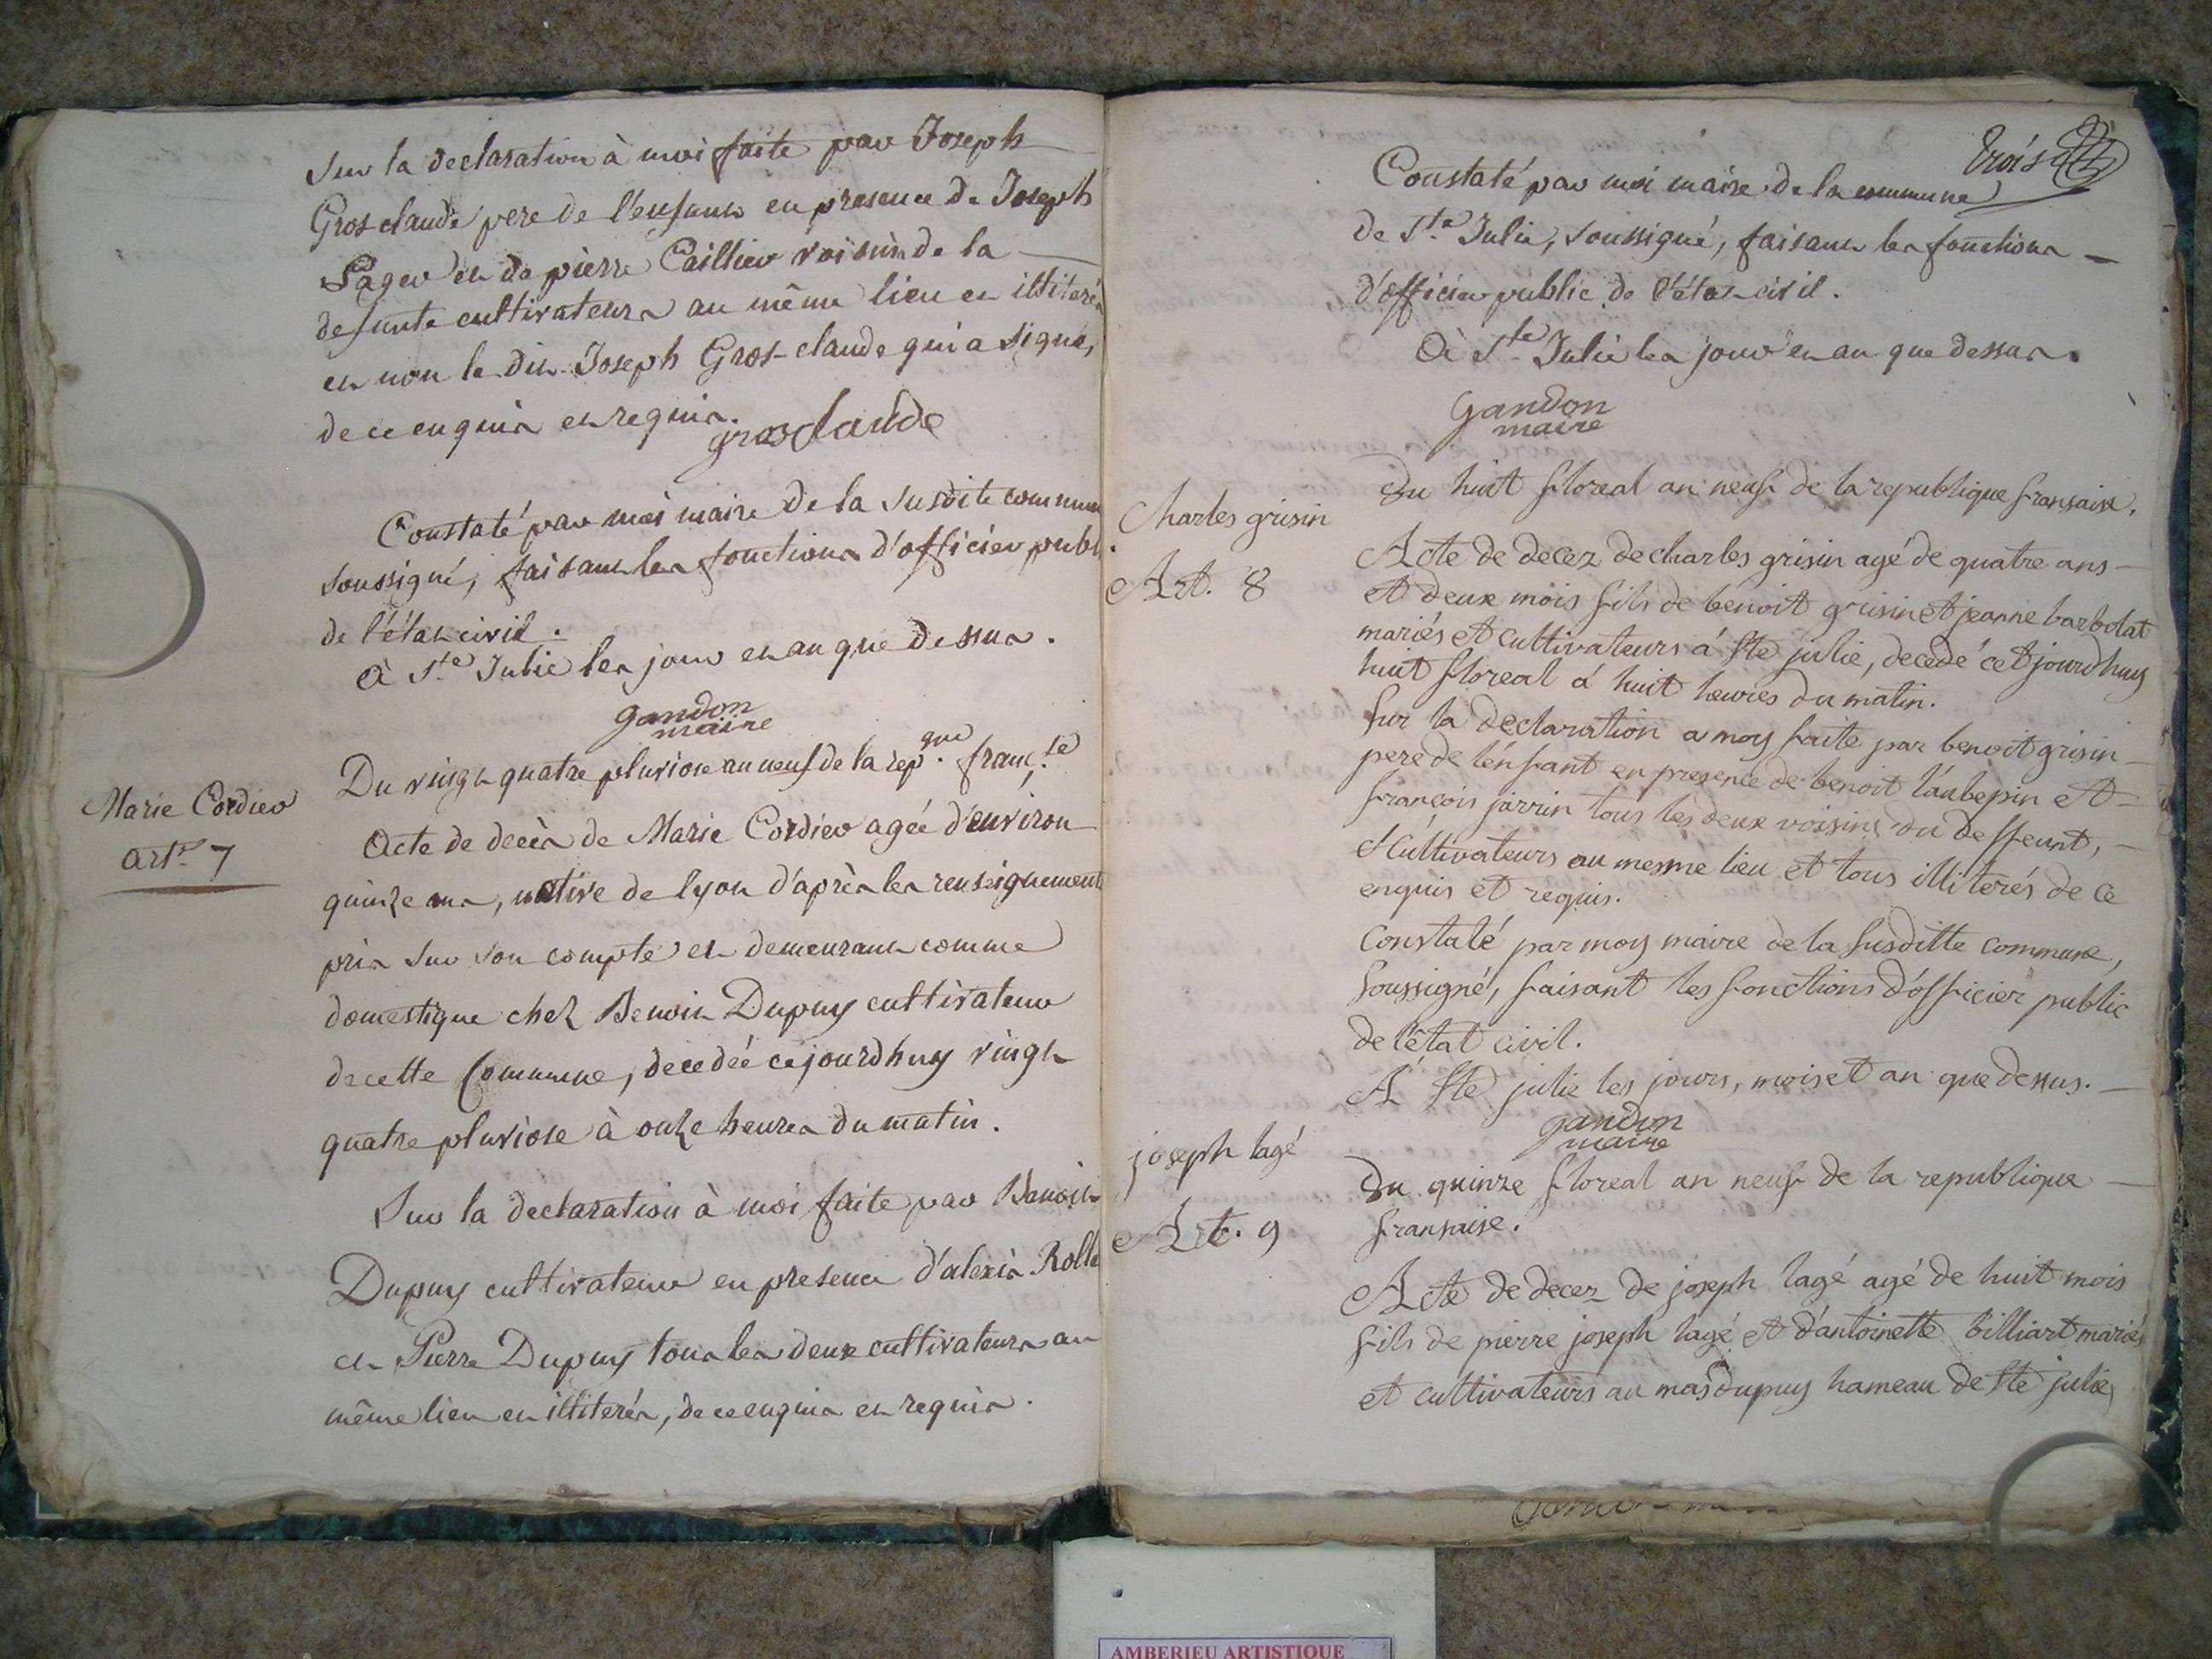 Sur la declaration à moi faite par Joseph
Gros claude pere de l'enfant en presence de Joseph
Pager et de pierre Caillier voisin de la
defunte cultivateurs au même lieu et illiterés
et non le dit Joseph Gros-claude qui a signé,
de ce enquis et requis.
grosclaude
Constaté par moi maire de la susdite commune
soussigné, faisant les fonctions d'officier publ
de l'état civil.
à Ste Julie les jour et an que dessus.
gandon
maire
Marie Cordier
artr. 7
Du vingt quatre pluviose an neuf de la rep.que franç.se
Acte de decès de Marie Cordier agée d'environ
quinze ans, native de lyon d'après les renseignement
pris sur son compte et demeurant comme
domestique chez Benoit Dupuy cultivateur
de cette Commune, decedée cejourdhuy vingt
quatre pluviose à onze heures du matin.
Sur la declaration à moi faite par Benoit
Dupuy cultivateur en presence d'alexis Rolle
et Pierre Dupuy tous les deux cultivateurs au
même lieu et illiterés, de ce enquis et requis.
trois
Constaté par moi maire de la commune
de Ste Julie, soussigné, faisant les fonctions
d'officier public de l'état civil.
à Ste Julie les jour et an que dessus.
gandon
maire
Du huit floreal an neuf de la republique fransaise.
Charles grisin
Art. 8
Acte de decez de charles grisin agé de quatre ans
et deux mois fils de benoit grisin et jeanne barbolat
mariés et cultivateurs á Ste julie, decedé cetjourdhuy
huit floreal á huit heures du matin.
Sur la declaration a moy faite par benoit grisin
pere de l'énfant en presence de benoit l'aubepin et
françois jarrin tous les deux voisins du deffeunt,
Cultivateurs au mesme lieu et tous illiterés de ce
enquis et requis.
Constaté par moy maire de la susditte commune,
soussigné, faisant les fonctions d'officier public
de l'état civil.
A Ste julie les jours, mois et an que dessus.
gandon
maire
joseph lagé
Art. 9
Du quinze floreal an neuf de la republique
fransaise.
Acte de decez de joseph lagé agé de huit mois
fils de pierre joseph lagé et d'antoinette billiart mariés
et cultivateurs au mas dupuy hameau de Ste julie,
AMBERIEU ARTISTIQUE